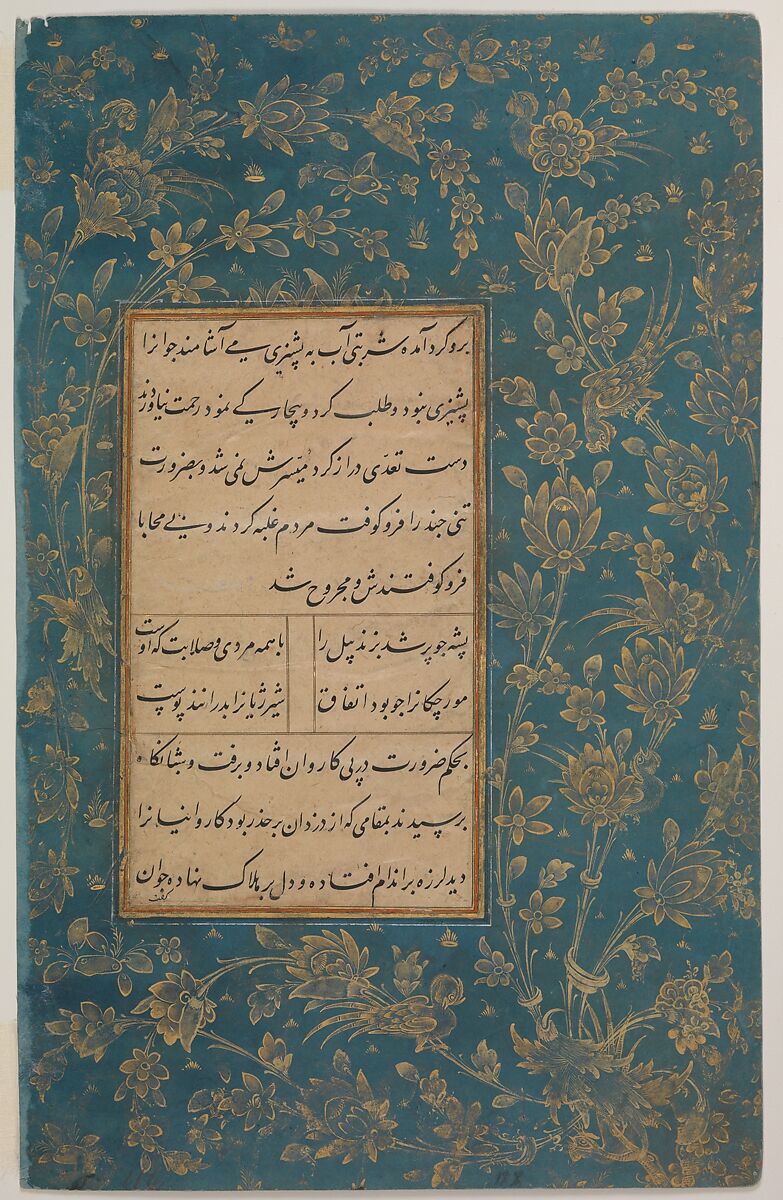 برو گرد آمده شربتی آب به پشیزی می آشامند جوانرا
پشیزی نبود و طلب کرد و بیچارگی نمود رحمت نیاوردند
دست تعدّی دراز کرد میّسرش نمی شد و بضرورت
تنی چند را فرو کوفت مردم غلبه کردند و بی محابا
فرو کوفتندش و مجروح شد
پشه چو پر شد بزند پیل را با همه مردی و صلابت که اوست
مورچکانرا چو بود اتفاق شیر ژیانرا بدرانند پوست
بحکم ضرورت در پی کاروان افتاد و برفت و شبانگاه
برسیدند بمقامی که از دزدان بر حذر بود کاروانیانرا
دید لرزه بر اندام افتاده و دل بر هلاک نهاده جوان
گفت